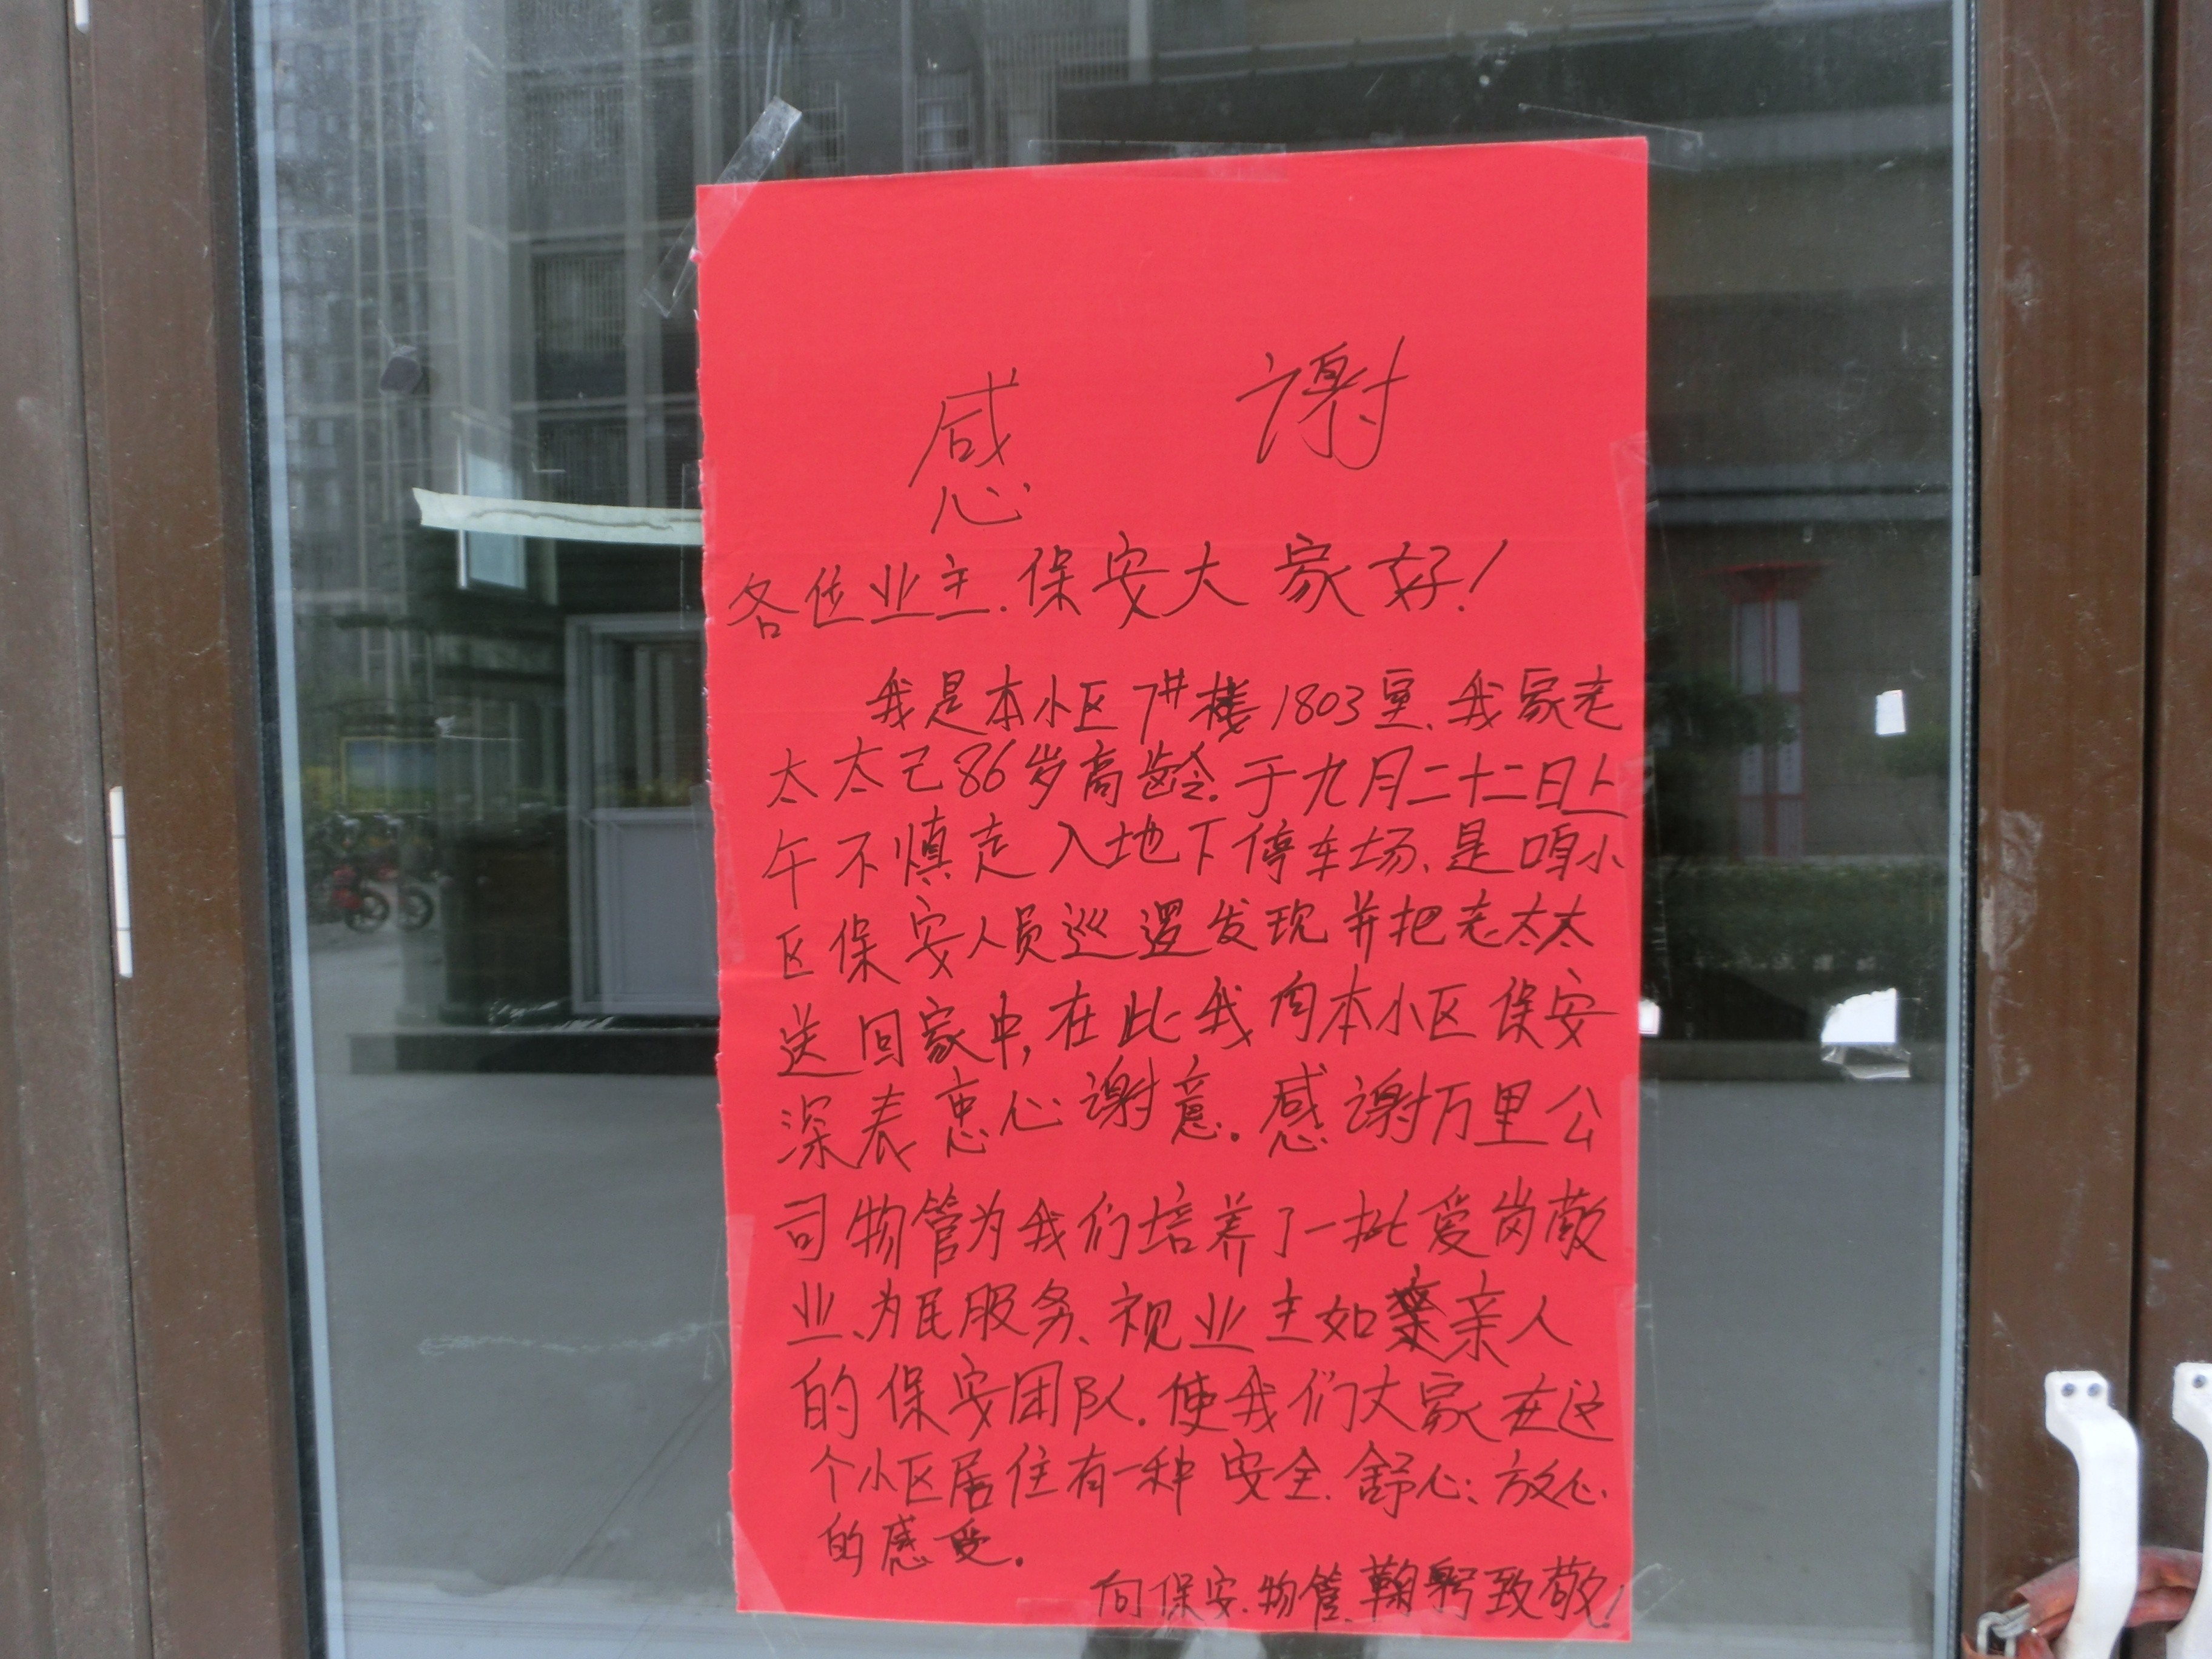 感 谢
各位业主.保安大家好!
我是本小区7#楼1803室、我家老
太太已86岁高龄.于九月二十二日上
午不慎走入地下停车场、是咱小
区保安人员巡逻发现并把老太太
送回家中,在此我向本小区保安
深表衷心谢意。感谢万里公
司物管为我们培养了一批爱岗敬
业、为民服务、视业主如亲人
的保安团队.使我们大家在这
个小区居住有一种安全.舒心、放心
的感受.
向保安.物管.鞠躬致敬!